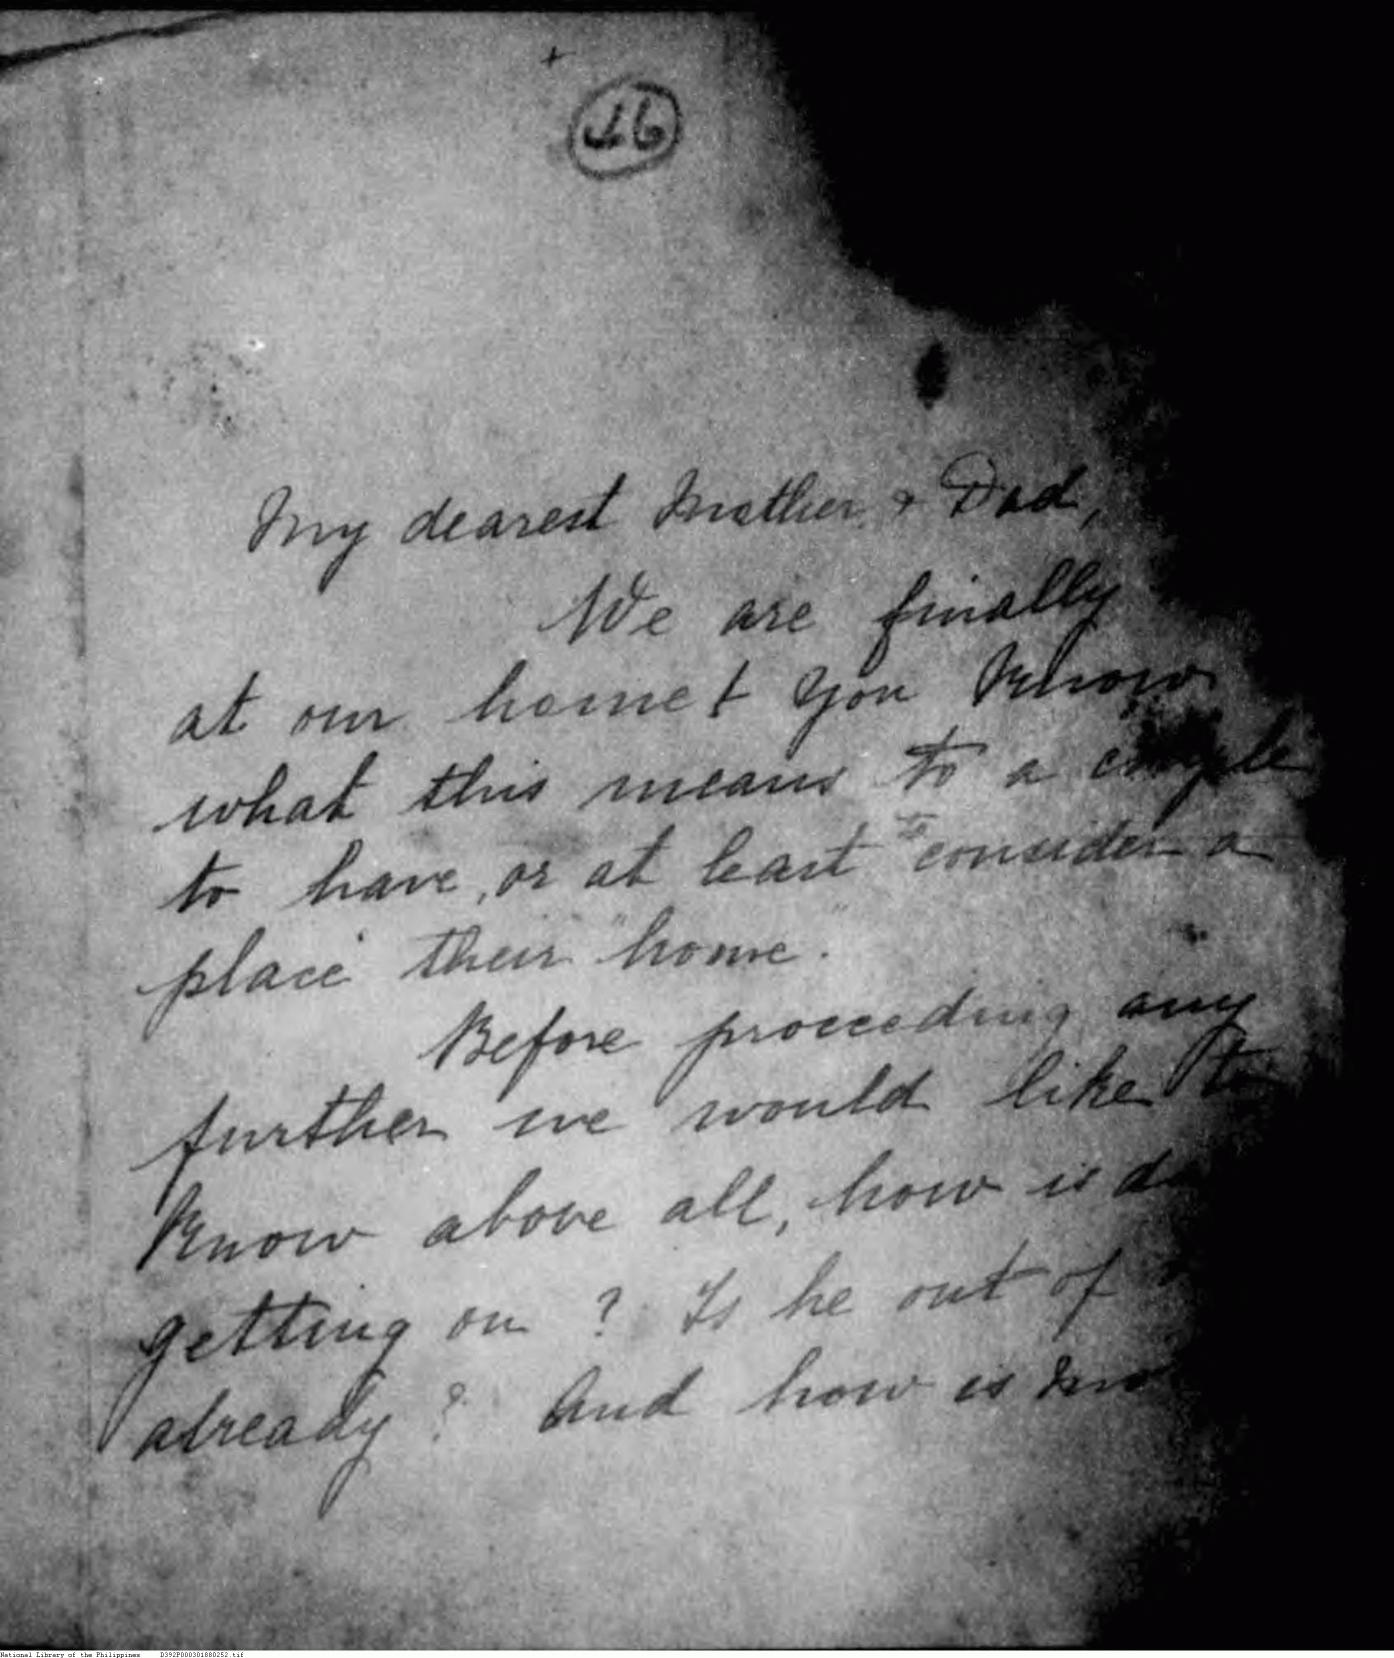 16
My dearest Mother & Dad,
We are finally
at our home! You know
what this means to a couple
to have, or at least to consider a
place their "home."
Before proceeding any
further we would like to
know above all, how is
getting on? Is he out of
already? And how is
National Library of the Philippines D392P000301880252.tif